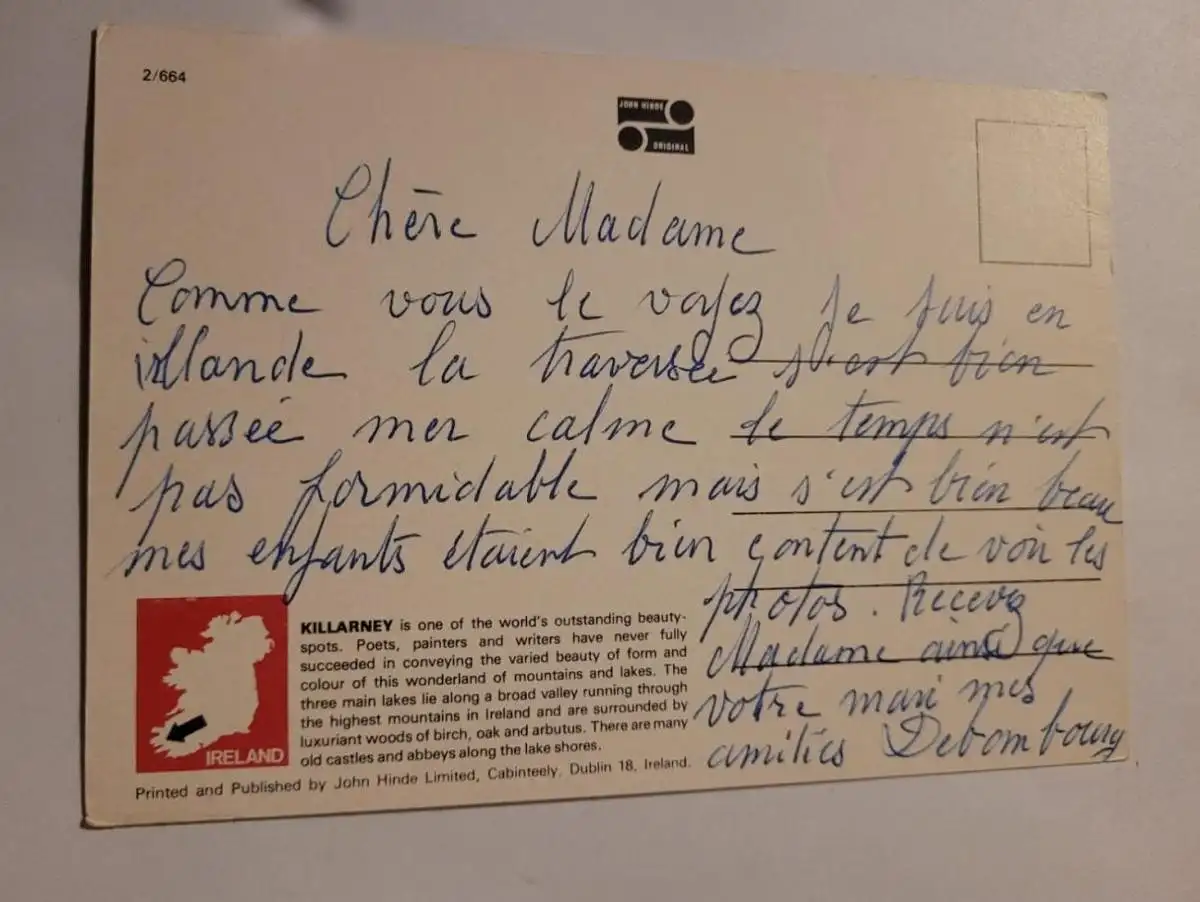 2/664
JOHN HINDE
ORIGINAL
Chère Madame
Comme vous le voyez je suis en
irllande la traversée s'est bien
passée mer calme le temps n'est
pas formidable mais s'est bien beau
mes enfants étaient bien content de voir les
photos. Recevez
Madame ainsi que
votre mari mes
amitiés Debombourg
KILLARNEY is one of the world's outstanding beauty-
spots. Poets, painters and writers have never fully
succeeded in conveying the varied beauty of form and
colour of this wonderland of mountains and lakes. The
three main lakes lie along a broad valley running through
the highest mountains in Ireland and are surrounded by
luxuriant woods of birch, oak and arbutus. There are many
old castles and abbeys along the lake shores.
IRELAND
Printed and Published by John Hinde Limited, Cabinteely, Dublin 18, Ireland.